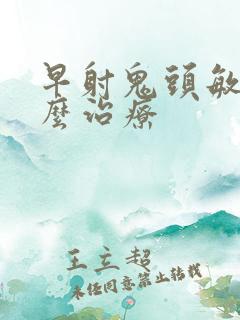 早射鬼頭敏
麼治療
王立超
未经同意禁止转载